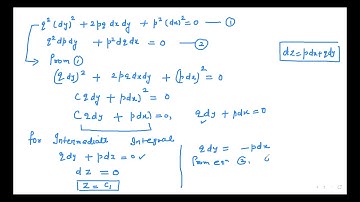 q²(dy)² + 2pq dxdy + p²(dx)² = 0 — ①
q² dpdy + p² dqdx = 0 — ②
dz = pdx + qdy
From ①
(qdy)² + 2pqdxdy + (pdx)² = 0
(qdy + pdx)² = 0
(qdy + pdx) = 0, qdy + pdx = 0
for Intermediate Integral
qdy + pdx = 0 ✓
dz = 0
z = c₁
qdy = -pdx
From eq ②,